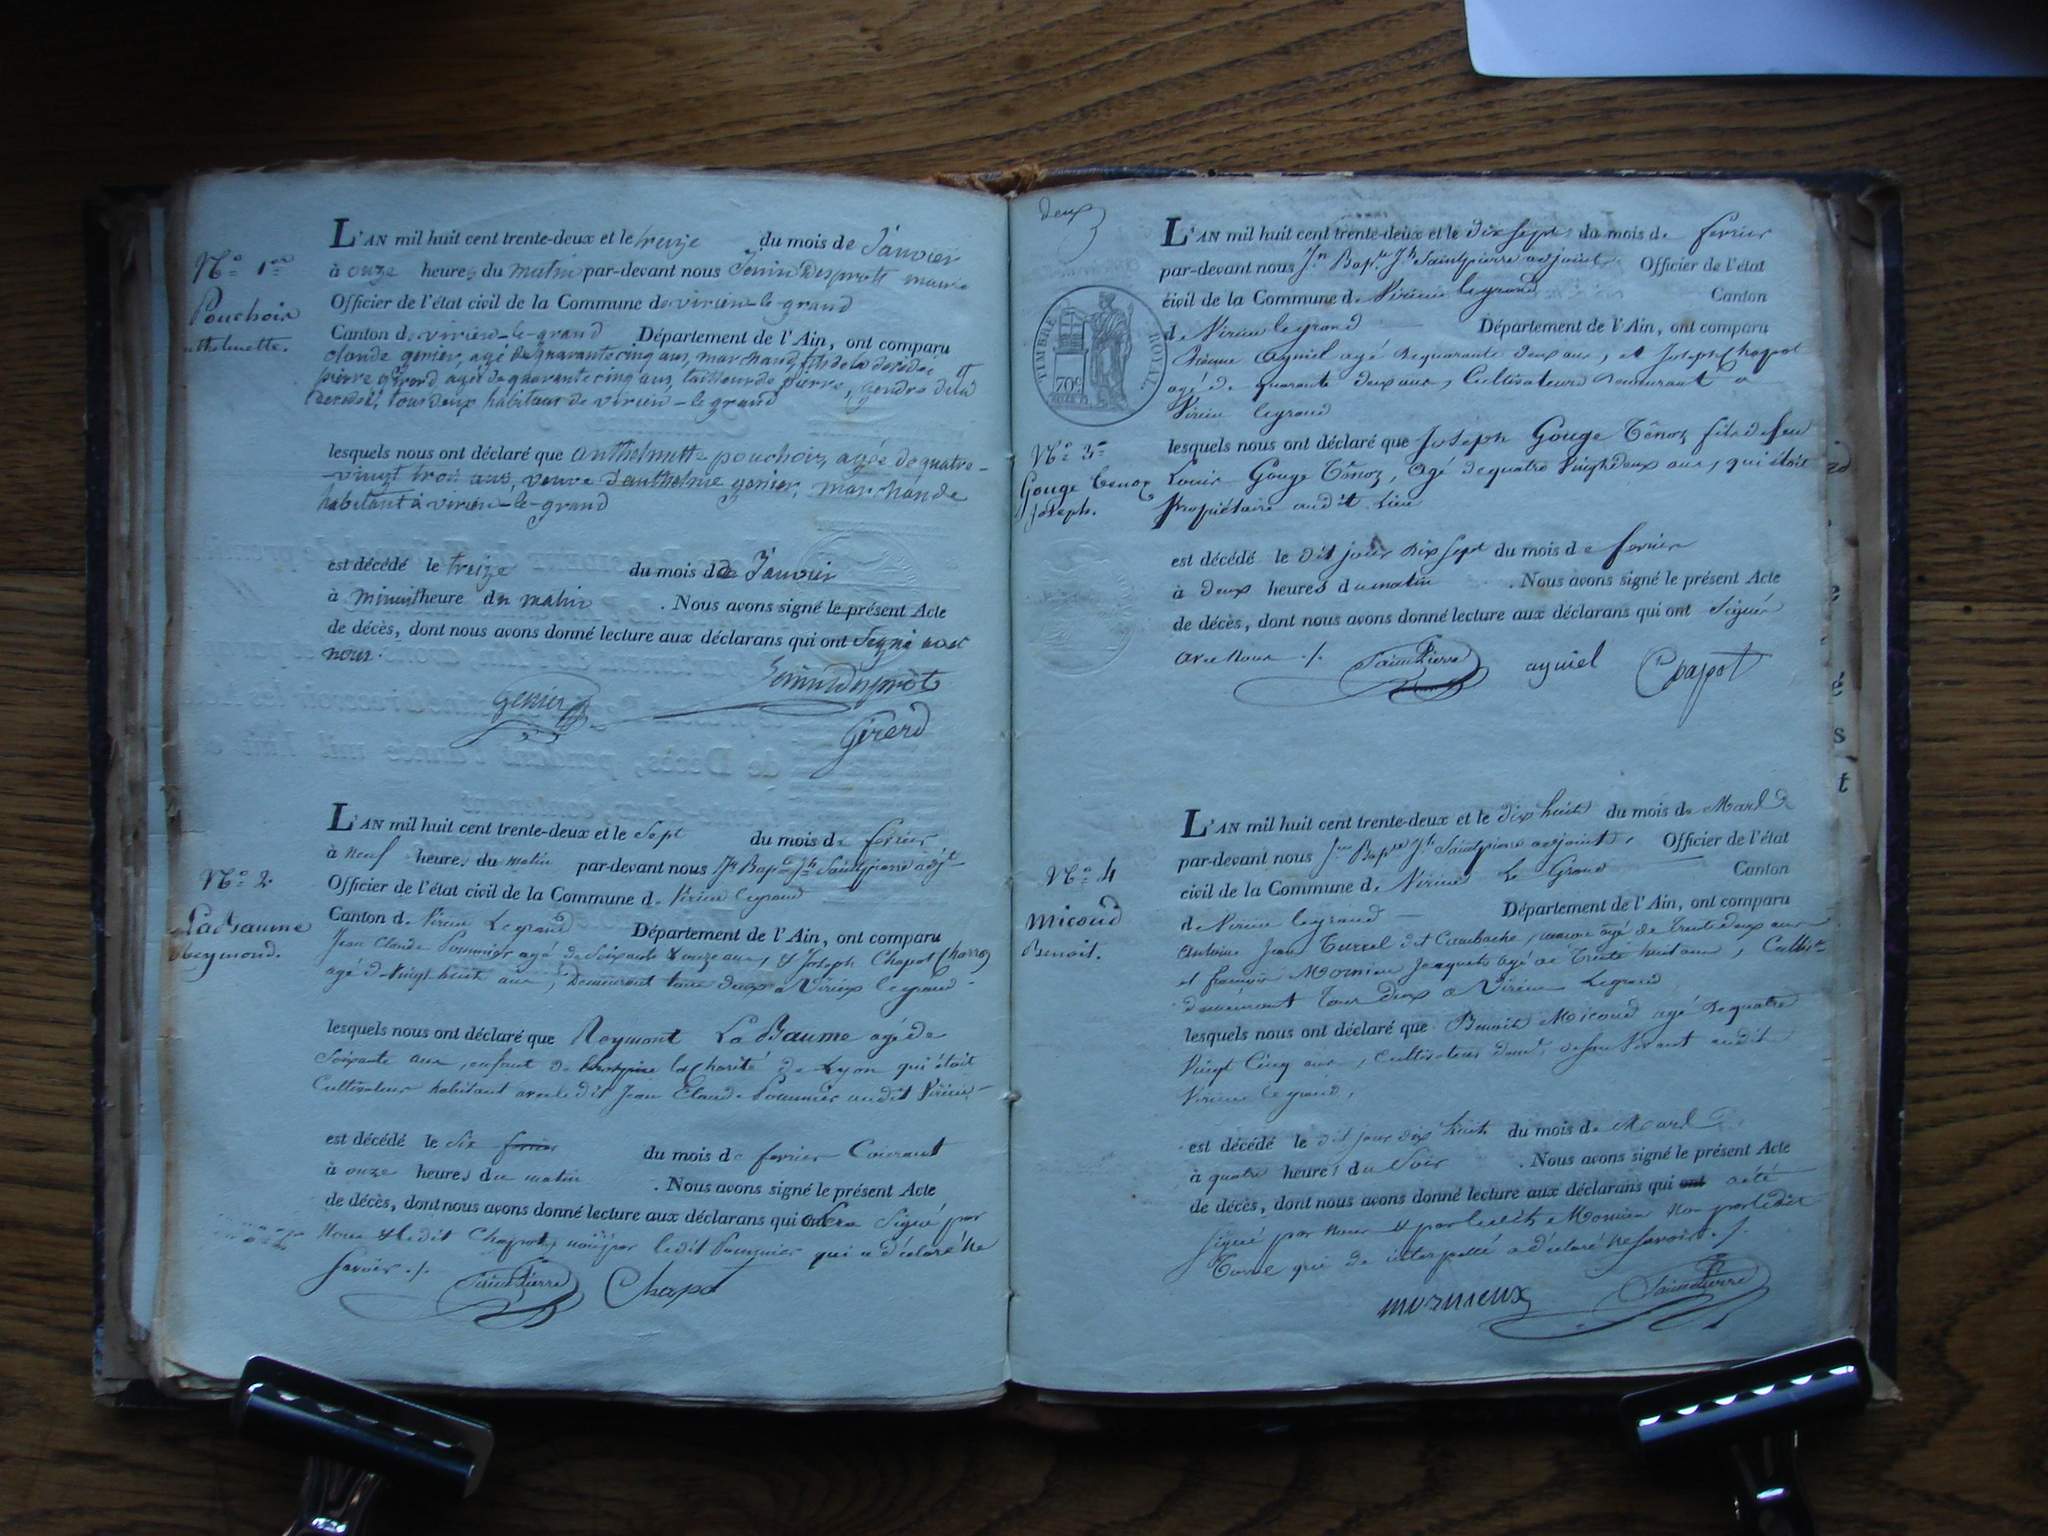 L'AN mil huit cent trente-deux et le treize du mois de Janvier
à onze heures du matin par-devant nous Jenin Desprott maire
Officier de l'état civil de la Commune de virieu-le-grand
Canton de virieu-le-grand Département de l'Ain, ont comparu
claude genier, agé de quarante cinq ans, marchand, fils de la décédée et
pierre girerd agé de quarante cinq ans, tailleur de pierre, gendre de la
décédée, tous deux habitans de virieu-le grand
N.º 1.er
Pouchoix
nthelmette.
lesquels nous ont déclaré que anthelmette pouchoix, agée de quatre-
vingt trois ans, veuve d'anthelme genier, marchande
habitant à virieu-le-grand
est décédé le treize du mois de Janvier
à minuit heure du matin . Nous avons signé le présent Acte
de décès, dont nous avons donné lecture aux déclarans qui ont signé avec
nous.
Genier
Girerd
L'AN mil huit cent trente-deux et le Sept du mois de fevrier
à neuf heures du matin par-devant nous Jn Bapte Jh Saintpierre adjt
Officier de l'état civil de la Commune de Virieu legrand
Canton de Virieu Legrand Département de l'Ain, ont comparu
Jean Claude Pommier agé de Soixante & onze ans, & Joseph Chapot
agé de Vingt huit ans, Demeurant tous deux a Virieux legrand
N.º 2
LaBaume
Reymond.
lesquels nous ont déclaré que Reymont La Baume agé de
Soixante ans, enfant de la Charité de Lyon qui étoit
Cultivateur habitant avec ledit Jean Claude Pommier audit Virieu
est décédé le Six fevrier du mois de fevrier Courant
à onze heures du matin . Nous avons signé le présent Acte
de décès, dont nous avons donné lecture aux déclarans qui Signé par
Nous & ledit Chapot, non par ledit Pommier qui a déclaré ne
Savoir ./.
SaintPierre Chapot
deux
L'AN mil huit cent trente-deux et le dix Sept du mois de fevrier
par-devant nous Jn Bapte Jh Saintpierre adjoint Officier de l'état
civil de la Commune de Virieu legrand Canton
de Virieu legrand Département de l'Ain, ont comparu
ayniel agé de quarante deux ans, et Joseph Chapot
agé de quarante deux ans, Cultivateurs Demeurant a
Virieu legrand
TIMBRE ROYAL
70c
N.º 3e
Gouge Tenoz
Joseph.
lesquels nous ont déclaré que Joseph Gouge Tênoz fils de feu
Louis Gouge Tênoz, agé de quatre Vingt deux ans, qui étoit
Propriétaire audit Lieu
est décédé le dit jour dix Sept du mois de fevrier
à deux heures du matin . Nous avons signé le présent Acte
de décès, dont nous avons donné lecture aux déclarans qui ont Signés
avec nous ./. SaintPierre ayniel Chapot
L'AN mil huit cent trente-deux et le dix huit du mois de Mars
par-devant nous Jn Bapte Jh Saintpierre adjoint, Officier de l'état
civil de la Commune de Virieu Le Grand Canton
de Virieu legrand Département de l'Ain, ont comparu
Antoine Jean Turrel dit Cambache, agé de Trente deux ans
et françois Mornieu Jacquet agé de Trente huit ans, Cultivrs
demeurant Tous deux a Virieu Legrand
N.º 4
Micoud
Benoit.
lesquels nous ont déclaré que Benoit Micoud agé de quatre
Vingt Cinq ans, Cultivateur dont de son Vivant audit
Virieu legrand,
est décédé le dit jour dix huit du mois de Mars
à quatre heures du Soir . Nous avons signé le présent Acte
de décès, dont nous avons donné lecture aux déclarans qui ont a été
signé par nous & par ledit Mornieu Non par ledit
Turrel qui de interpellé a déclaré ne Savoir ./.
mornieux SaintPierre